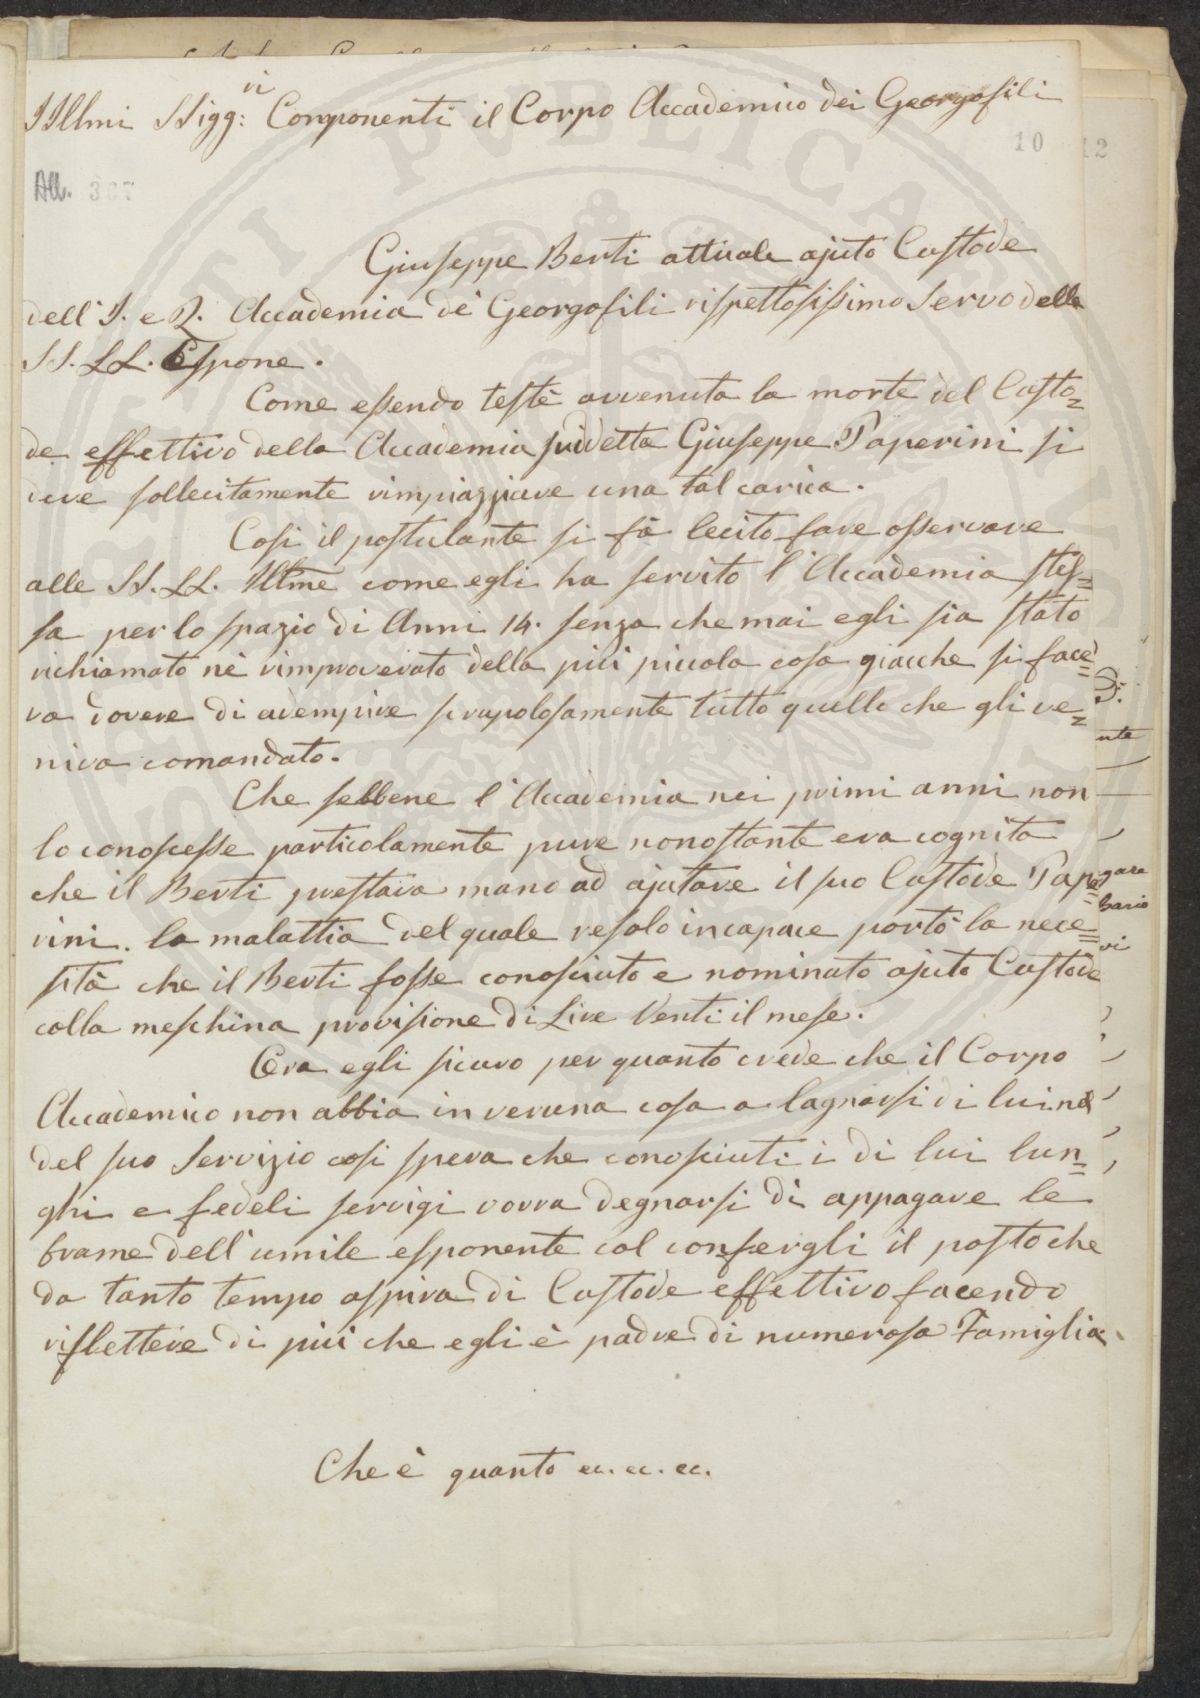 Illmi Sigg:ri Componenti il Corpo Accademico dei Georgofili
10
12
All. 307
Giuseppe Berti attuale ajuto Custode
dell'I. e R. Accademia de' Georgofili rispettosissimo Servo delle
SS. LL. Espone.
Come essendo testè avvenuta la morte del Custo=
de effettivo della Accademia sudetta Giuseppe Paperini si
deve sollecitamente rimpiazziare una tal carica.
Cosi il postulante si fà lecito fare osservare
alle SS. LL. Illme come egli ha servito l'Accademia stes=
sa per lo spazio di Anni 14. senza che mai egli sia stato
richiamato nè rimproverato della più piccola cosa giacche si face=
va dovere di adempire scrupolosamente tutto quello che gli ve=
niva comandato.
Che sebbene l'Accademia nei primi anni non
lo conoscesse particolamente pure nonostante era cognita
che il Berti prestava mano ad ajutare il suo Custode Pape=
rini. la malattia del quale resolo incapace portò la nece=
sità che il Berti fosse conosciuto e nominato ajuto Custode
colla meschina provisione di Lire Venti il mese.
Era egli sicuro per quanto crede che il Corpo
Accademico non abbia in veruna cosa a lagnarsi di lui nè
del suo Servizio così spera che conosciuti i di lui lun=
ghi e fedeli servigi vorra degnarsi di appagare le
brame dell'umile esponente col conferirgli il posto che
da tanto tempo aspira di Custode effettivo facendo
riflettere di più che egli è padre di numerosa Famiglia
Che è quanto ec. ec. ec.